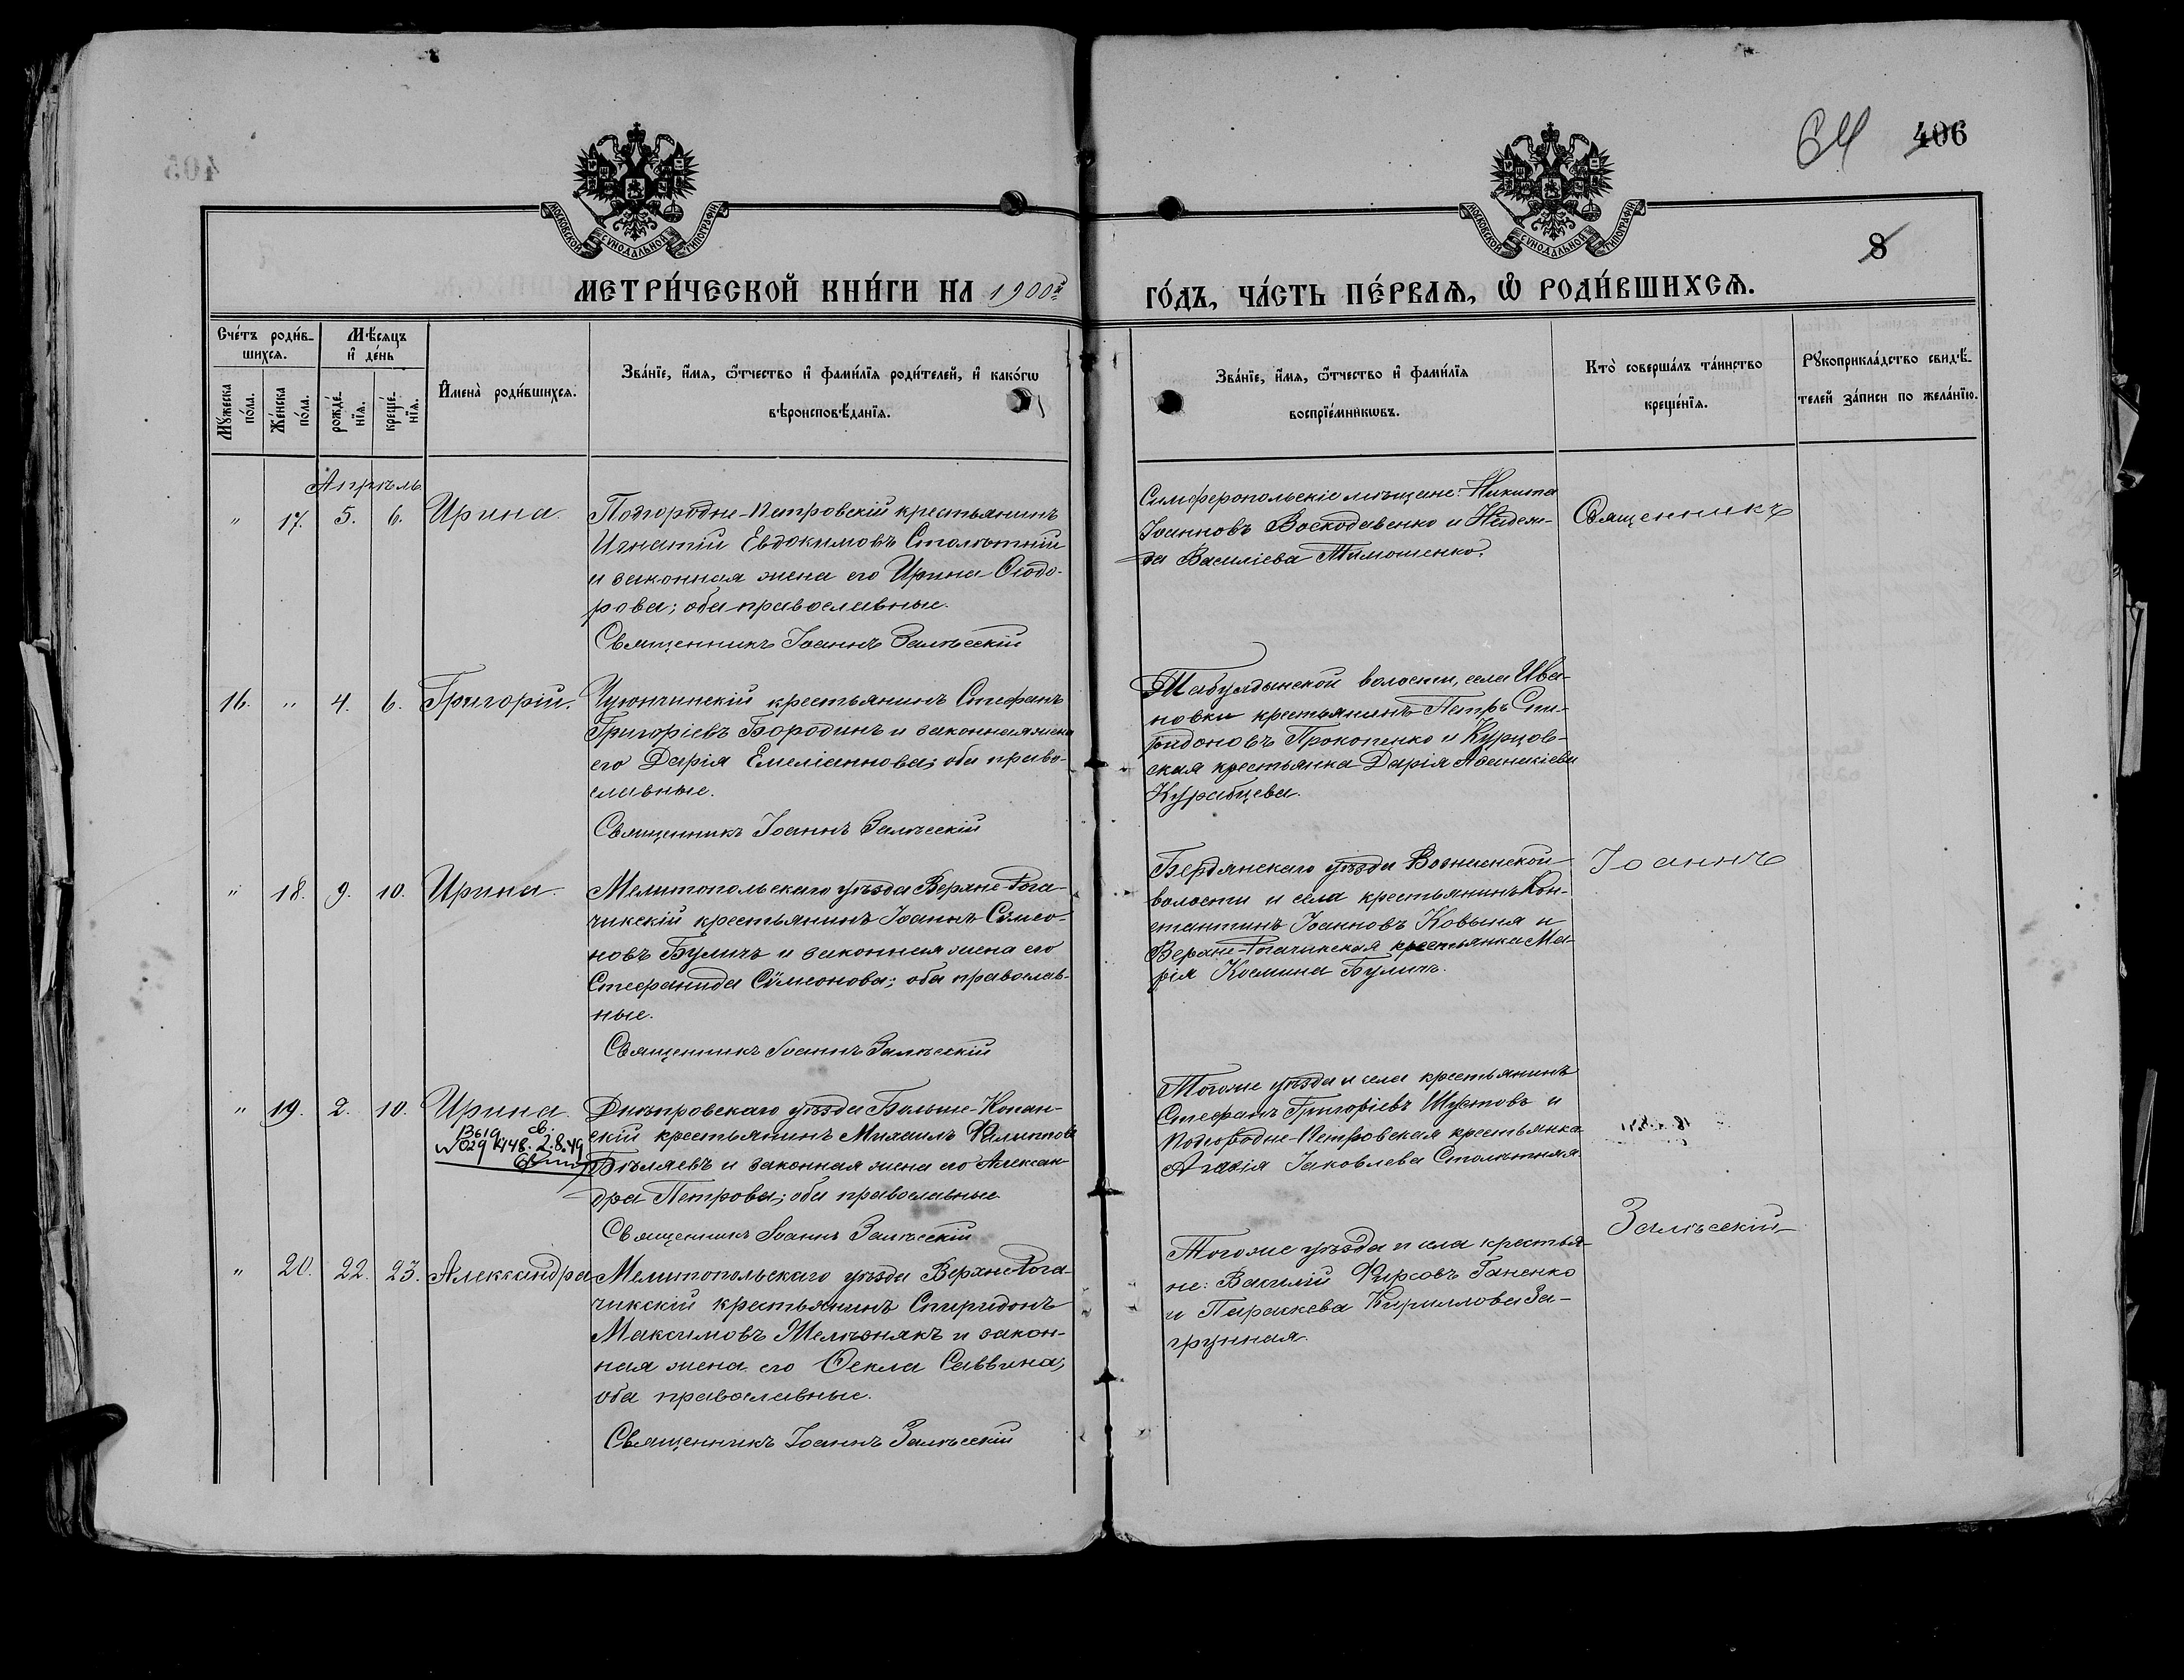 64 406
8
МОСКОВСКОЙ СѴНОДАЛЬНОЙ ТИПОГРАФІИ
МОСКОВСКОЙ СѴНОДАЛЬНОЙ ТИПОГРАФІИ
МЕТРИ́ЧЕСКОЙ КНИ́ГИ НА 1900й
ГО́ДЪ, ЧА́СТЬ ПЕ́РВАѦ, Ѡ҆ РОДИ́ВШИХСѦ.
Сче́тъ роди́в-
шихсѧ.
Мѣ́сяцъ
и҆ де́нь
Мꙋ́жеска
по́ла.
Же́нска
по́ла.
рожде́-
нїѧ.
креще́-
нїѧ.
И҆мена̀ роди́вшихсѧ.
Зва́нїе, и҆́мѧ, ѻ҆́тчество и҆ фами́лїѧ роди́телей, и҆ како́гѡ
вѣроисповѣ́данїѧ.
Зва́нїе, и҆́мѧ, ѻ҆́тчество и҆ фами́лїѧ
воспрїе́мникѡвъ.
Кто̀ соверша́лъ та́инство
креще́нїѧ.
Рꙋкоприкла́дство свидѣ́-
телей за́писи по жела́нїю.
Апрѣль
" 17. 5. 6. Ирина.
Подгородне-Петровскій крестьянинъ
Игнатій Евдокимовъ Столѣтній
и законная жена его Ирина Ѳеодо-
рова; оба православные.
Священникъ Іоаннъ Залѣсскій
Симферопольскіе мѣщане: Никита
Іоанновъ Воскодавенко и Надеж-
да Василіева Тимошенко.
Священникъ
16. " 4. 6. Григорій.
Чуюнчинскій крестьянинъ Стефанъ
Григоріевъ Бородинъ и законная жена
его Дарія Емеліаннова; оба право-
славные.
Священникъ Іоаннъ Залѣсскій
Табулдынской волости, села Ива-
новки крестьянинъ Петръ Спи-
ридоновъ Прокопенко и Курцов-
ская крестьянка Дарія Аѳанасіева
Курабцева.
" 18. 9. 10. Ирина.
Мелитопольскаго уѣзда Верхне-Рога-
чикскій крестьянинъ Іоаннъ Сѵмео-
новъ Буличъ и законная жена его
Стефанида Сѵмеонова; оба православ-
ные.
Священникъ Іоаннъ Залѣсскій
Бердянскаго уѣзда Вознесенской
волости и села крестьянинъ Кон-
стантинъ Іоанновъ Ковыня и
Верхне-Рогачикская крестьянка Ма-
рія Космина Буличъ.
Іоаннъ
" 19. 2. 10. Ирина.
св.
029 448. 2.8.49
Днѣпровскаго уѣзда Больше-Копан-
скій крестьянинъ Михаилъ Филиповъ
Бѣляевъ и законная жена его Алексан-
дра Петрова; оба православные
Священникъ Іоаннъ Залѣсскій
Тогоже уѣзда и села крестьянинъ
Стефанъ Григоріевъ Шустовъ и
Подгородне-Петровская крестьянка
Агафія Іаковлева Столѣтняя.
Залѣсскій
" 20. 22. 23. Александра
Мелитопольскаго уѣзда Верхне-Рога-
чикскій крестьянинъ Спиридонъ
Максимовъ Желѣзнякъ и закон-
ная жена его Ѳекла Саввина;
оба православные.
Священникъ Іоаннъ Залѣсскій
Тогоже уѣзда и села крестья-
не: Василій Фирсовъ Ганенко
и Параскева Кириллова За-
грунная.